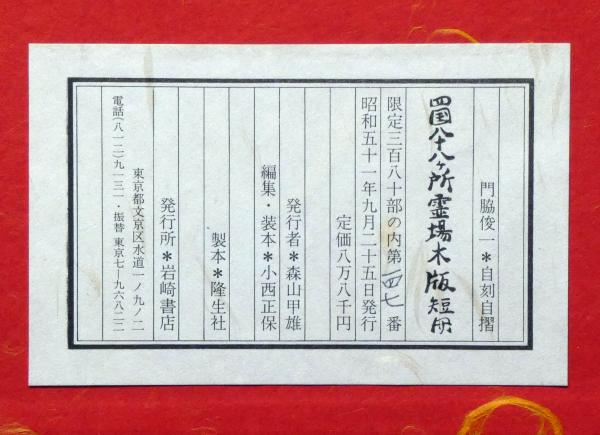 門脇俊一＊自刻自摺
四国八十八ヶ所霊場木版短冊
限定三百八十部の内第一四七番
昭和五十一年九月二十五日発行
定価八万八千円
発行者＊森山甲雄
編集・装本＊小西正保
製本＊隆生社
発行所＊岩崎書店
東京都文京区水道一ノ九ノ二
電話(八一二)九一三一・振替 東京七―九六八二二